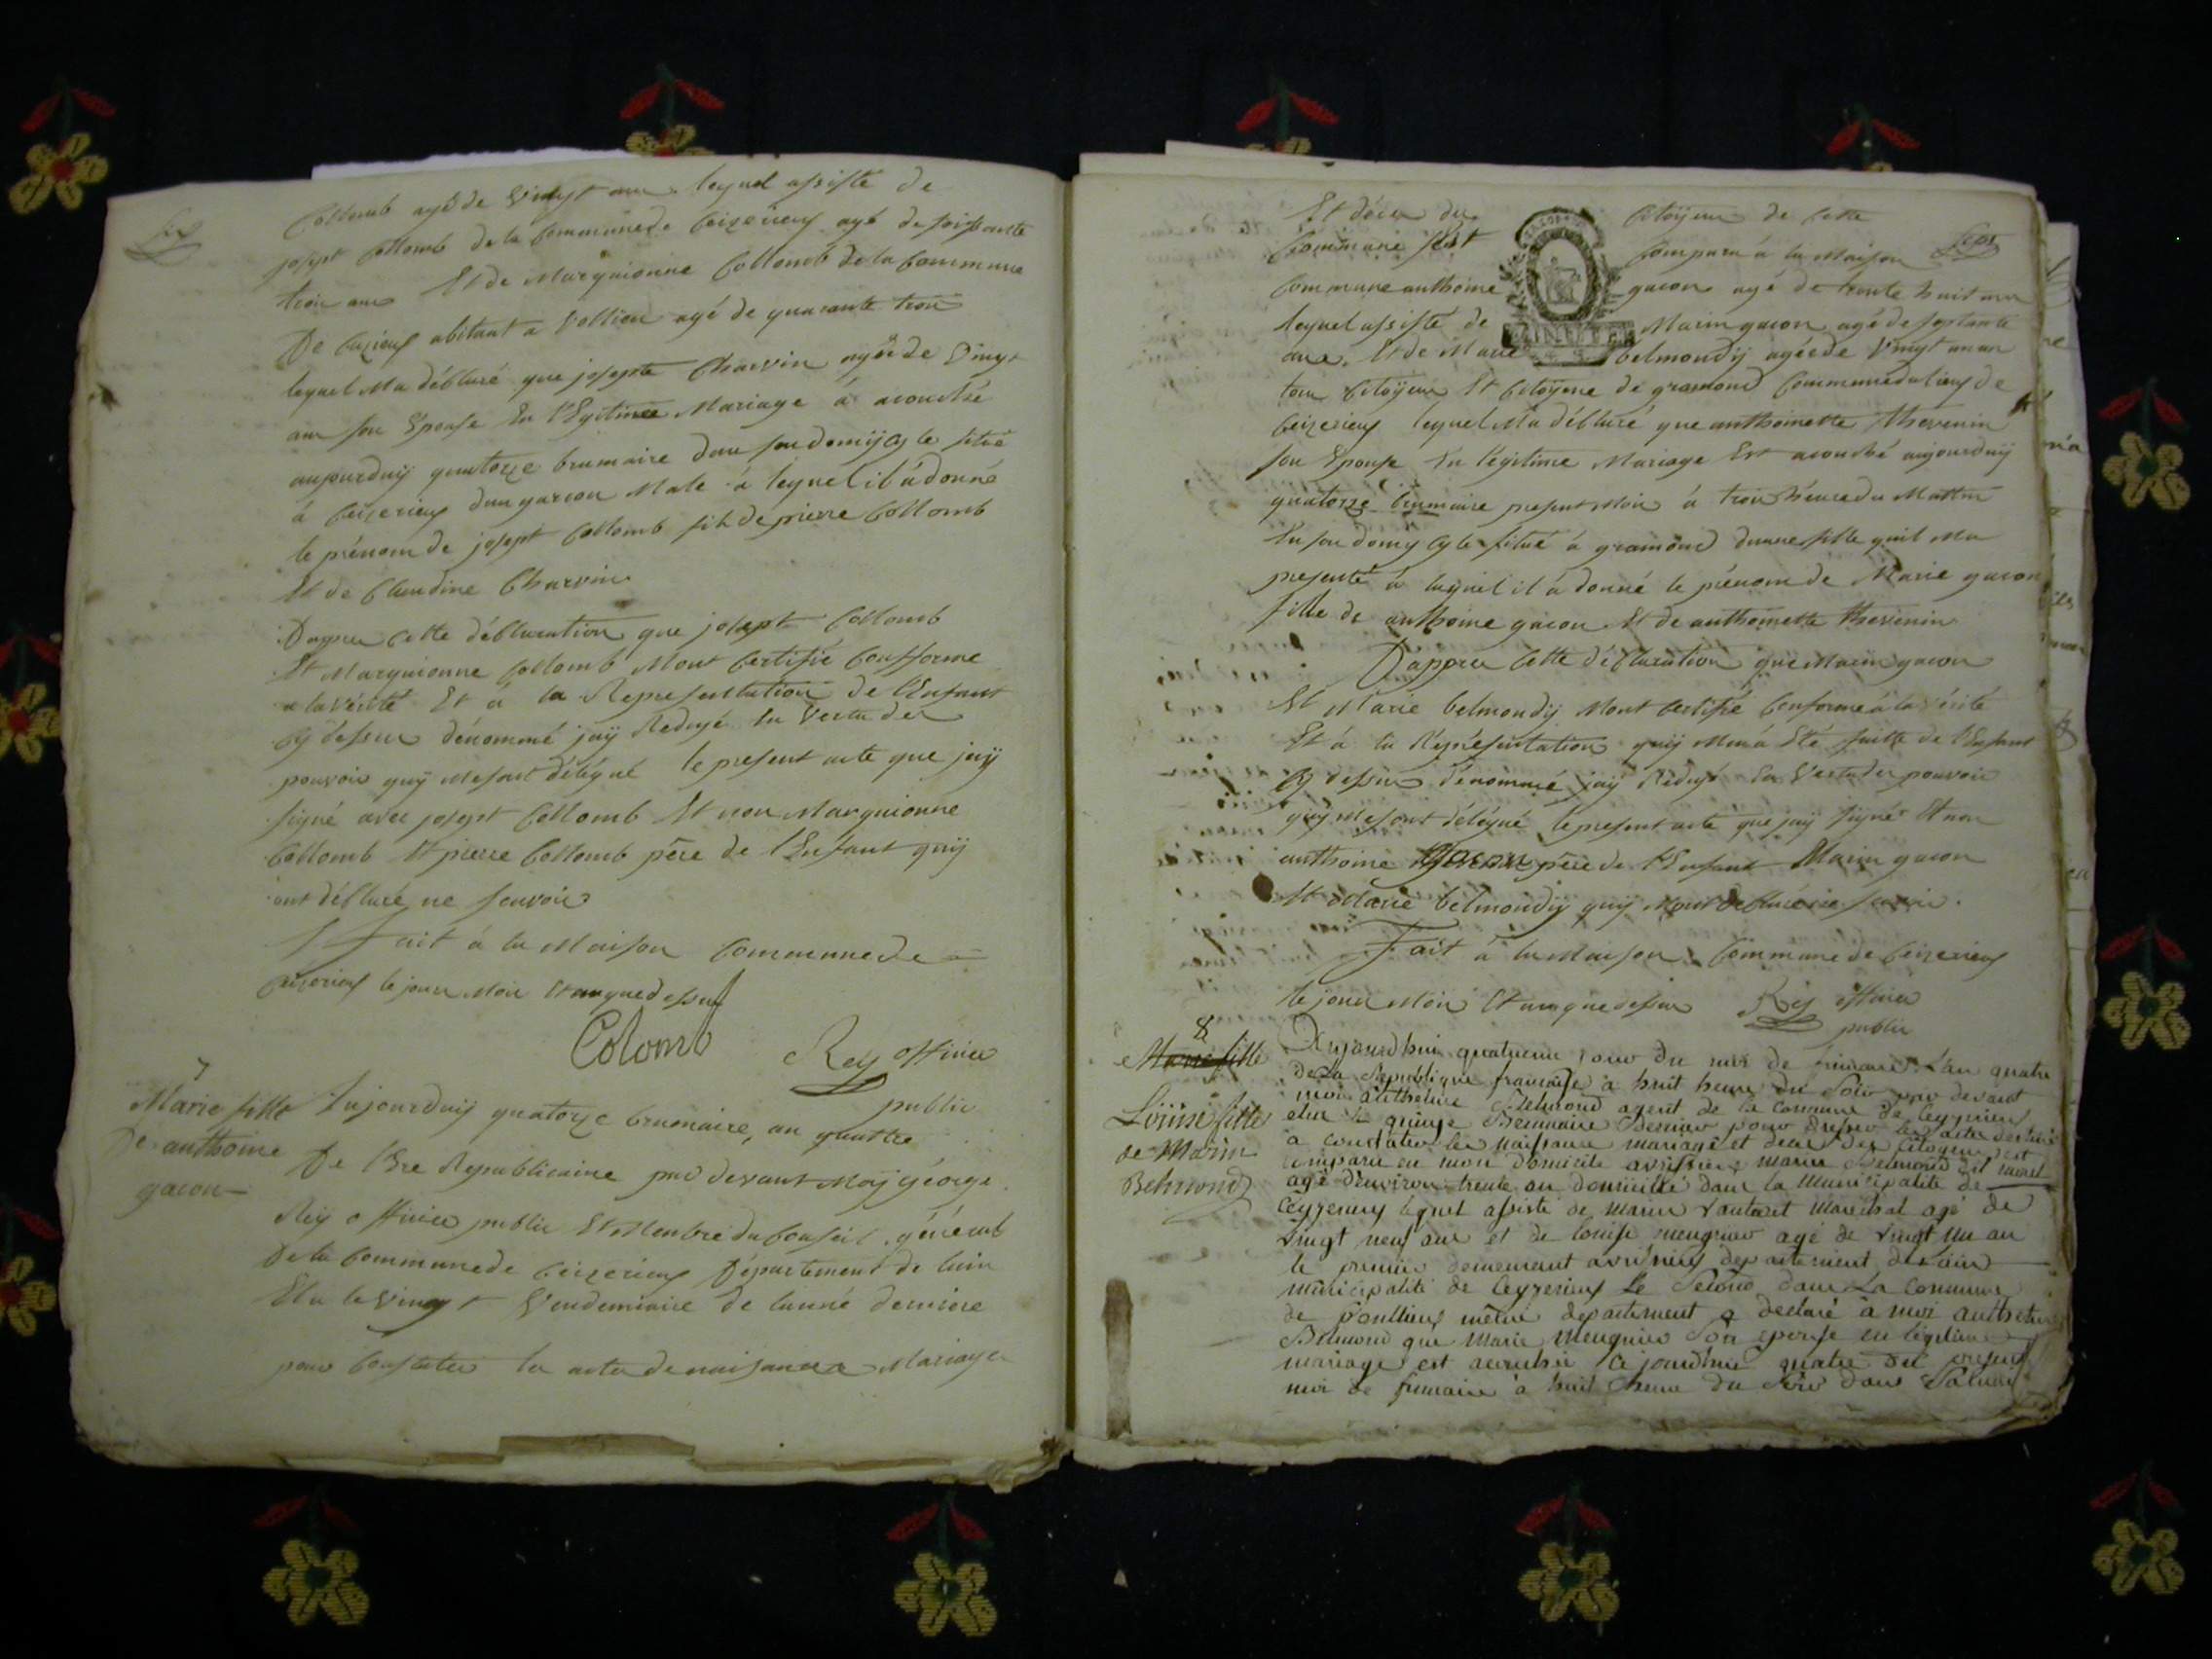 Six
Collomb agé de Vingt ans lequel assisté de
josept Collomb de la Commune de Ceizerieux agé de soissante
trois ans Et de Marguionne Collomb de la Commune
De Cuzieux abitant a Vollien agé de quarante trois
lequel Ma débluré que josepte Charvin agéé de Vingt
ans son Epouse En l'Egitimee Mariage á acouchée
aujourduÿ quatorze brumaire dans son domÿcyle situé
á Ceizerieux dun garcon Male á lequel il á donné
le prénom de josept Collomb fils de pierre Collomb
Et de Claudine Charvin
Dappres Cette débluration que josept Collomb
Et Marguionne Collomb Mont Certifié Conforme
a la Vérité Et á la Représentation de l'Enfant
Cÿ dessus dénommé jaÿ Redigé En Vertu des
pouvoirs quÿ Mesont délégué le present acte que jaÿ
signé avec josept Collomb Et non Marguionne
Collomb Et pierre Collomb pére de l'Enfant quÿ
ont débluré ne savoir
Fait á la Maison Commune de
Ceizerieux le jour Mois Et an que dessus
Colomb
Reÿ officier
public
7
Marie fille
De anthoine
gacon
Aujourduÿ quatorze brumaire, an quattre
De l'Ere Republicaine par devant Moÿ géorge
Reÿ officier public Et Membre du Conseil général
De la Commune de Ceizerieux Département de lain
Elu le Vingt Vendemiaire de lanné derniere
pour Constater les actes de naissances Mariages
Et décés des Citoÿens de Cette
Sept
Commune sest Comparu á la Maison
Commune anthoine gacon agé de trente huit ans
lequel assisté de Marin gacon agé de septante
MINUTE
ans, Et de Marie belmondÿ agéé de Vingt un an
tous Citoÿens Et Citoÿene de gramond Commune du lieux de
Ceizerieux lequel Ma débluré que anthoinette thevenin
son Epouse En l'égitime Mariage Est acouché aujourduÿ
quatorze brumaire present Mois á trois heures du Mattin
En son domÿcyle situé á gramond dunne fille quil Ma
presenté á laquel il á donné le prénom de Marie gacon
fille de anthoine gacon Et de anthoinette thevenin
Dappres Cette débluration que Marin gacon
Et Marie belmondÿ Mont Certifié Conforme á la Vérité
Et á la Représentation quÿ Mená Eté faitte de l'Enfant
Cÿ dessus dénommé jaÿ Redigé En Vertu des pouvoirs
quÿ Mesont délégué le present acte que jaÿ signé Et non
anthoine gacon pére de l'Enfant Marin gacon
Et Marie belmondÿ quÿ Mont débluré ne savoir.
Fait á la Maison Commune de Ceizerieux
le jour Mois Et an que dessus Reÿ officier
public
8
Marie fille
Louise fille
de Marin
Belmond
Aujourdhui quatrieme jour du mois de frimaire l'an quatre
de la Republique française à huit heures du Soir par devant
moi anthelme Belmond agent de la commune de Ceyzerieux
elu le quinze Brumaire Dernier pour dresser les actes destiné
a constater les naissances mariages et deces des citoyens s'est
comparu en mon domicile avrissieu marin Belmond dit
agé d'environ trente ans domicilié dans la municipalité de
Ceyzerieux lequel assisté de marin marechal agé de
vingt neuf ans et de louise meugnier agé de vingt un an
le premier demeurant avrissieux departement de lain
municipalité de Ceyzerieux Le Second dans La Commune
de Pollieux même departement a declaré à moi anthelme
Belmond que marie meugnier Son epouse en legitime
mariage est accouchée ce jourdhui quatre du present
moi de frimaire à huit heure du Soir dans